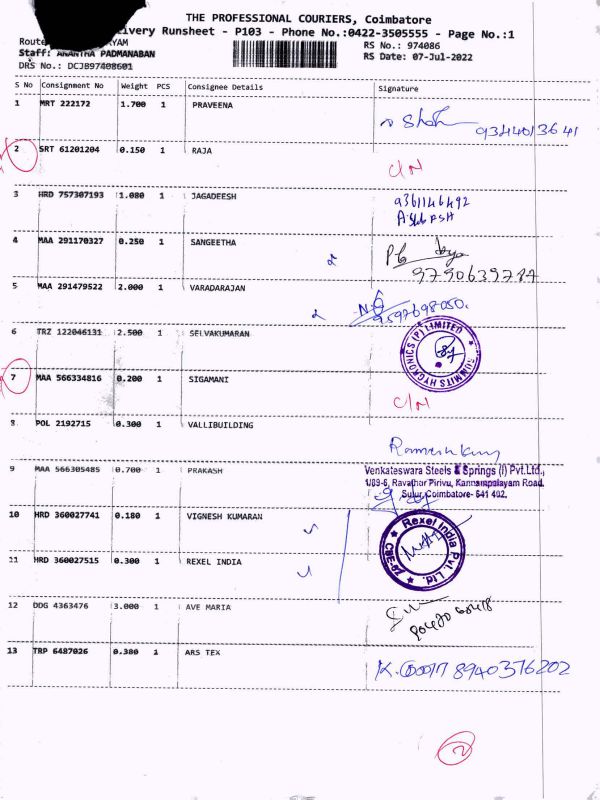 THE PROFESSIONAL COURIERS, Coimbatore
livery Runsheet - P103 - Phone No.:0422-3505555 - Page No.:1
Route YAM
RS No.: 974086
Staff: ANANTHA PADMANABAN
RS Date: 07-Jul-2022
DRS No.: DCJB97408601
S No Consignment No Weight PCS Consignee Details Signature
1 MRT 222172 1.700 1 PRAVEENA
9344013641
2 SRT 61201204 0.150 1 RAJA
C/N
3 HRD 757307193 1.080 1 JAGADEESH
9361146492
4 MAA 291170327 0.250 1 SANGEETHA
9790639787
5 MAA 291479522 2.000 1 VARADARAJAN
9597698050
6 TRZ 122046131 2.500 1 SELVAKUMARAN
SUMMITS HYGRONICS (P) LIMITED
7 MAA 566334816 0.200 1 SIGAMANI
C/N
8 POL 2192715 0.300 1 VALLIBUILDING
Rameshkumar
9 MAA 566305485 0.700 1 PRAKASH
Venkateswara Steels & Springs (I) Pvt.Ltd.,
1/89-6, Ravathur Pirivu, Kannampalayam Road,
Sulur, Coimbatore- 641 402.
10 HRD 360027741 0.180 1 VIGNESH KUMARAN
11 HRD 360027515 0.300 1 REXEL INDIA
Rexel India Pvt. Ltd.
12 DDG 4363476 3.000 1 AVE MARIA
13 TRP 6487026 0.380 1 ARS TEX
8940376202
2